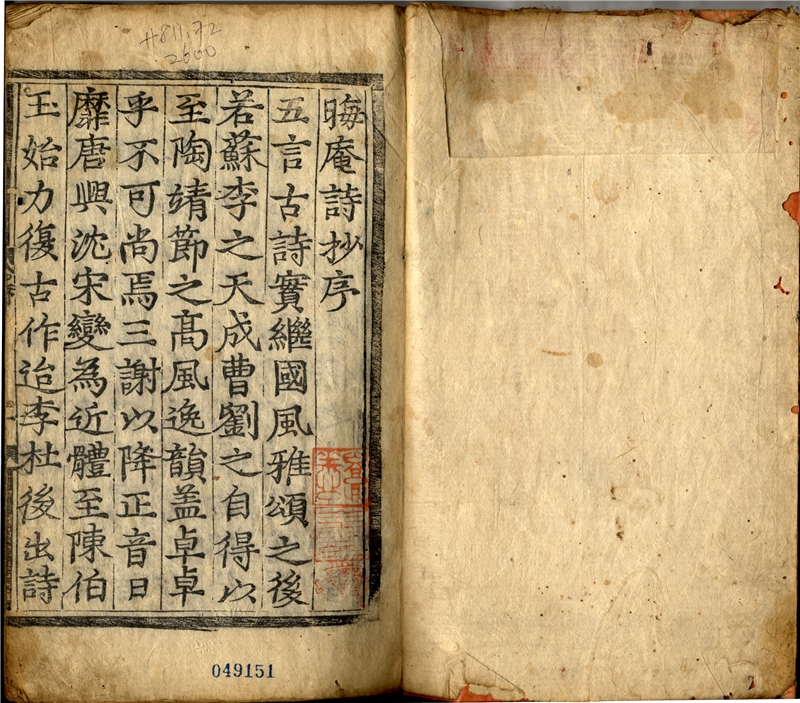 晦庵詩抄序
五言古詩實繼國風雅頌之後
若蘇李之天成曹劉之自得以
至陶靖節之高風逸韻盖卓卓
乎不可尚焉三謝以降正音日
靡唐興沈宋變為近體至陳伯
玉始力復古作迨李杜後出詩
H811.72
2600
049151